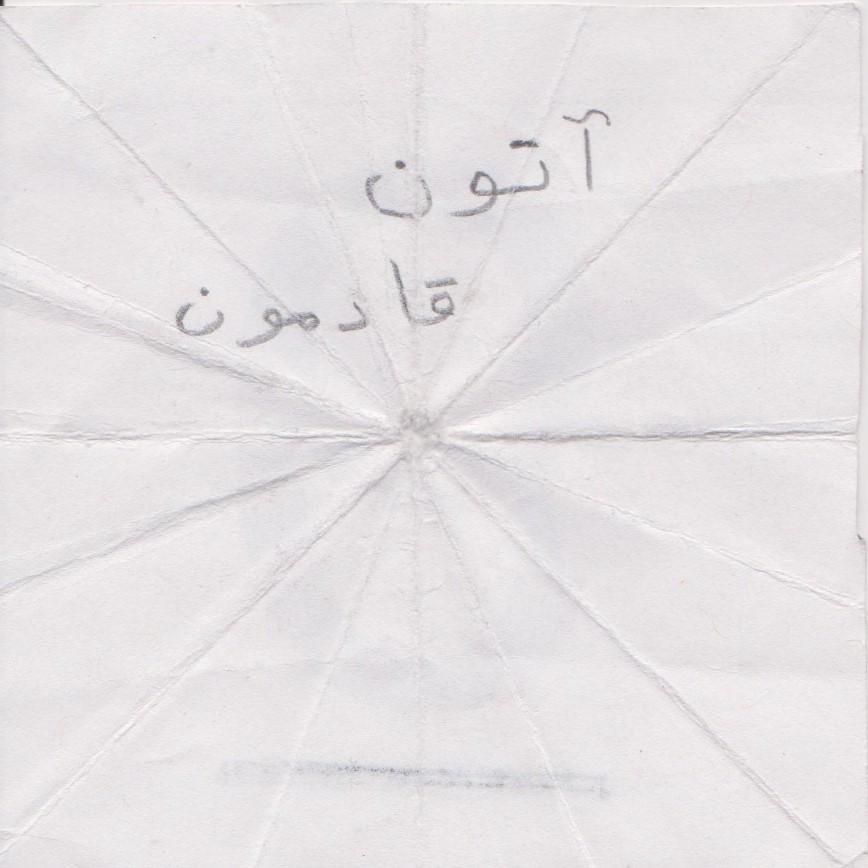 آتون
قادمون